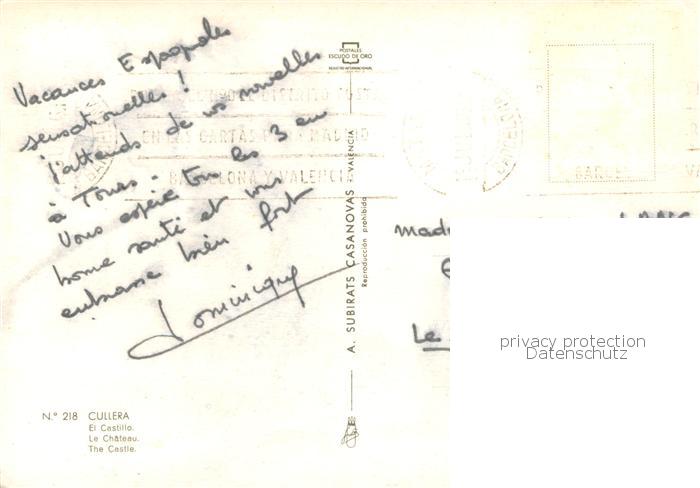 Vacances Espagnoles
sensationelles !
j'attends de vos nouvelles
à Tours.
Vous espère tous les 3 en
bonne santé et vous
embrasse bien fort
Dominique
POSTALES
ESCUDO DE ORO
REGISTRO INTERNACIONAL
DISTRITO POSTAL
EN LAS CARTAS PARA MADRID
BARCELONA Y VALENCIA
BARCELONA
A. SUBIRATS CASANOVAS VALENCIA
Reproducción prohibida
Le
privacy protection
Datenschutz
N.º 218 CULLERA
El Castillo.
Le Château.
The Castle.